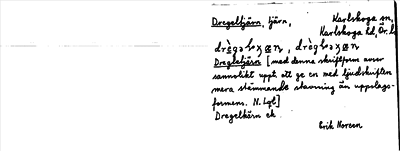 Dregeltjärn, tjärn, Karlskoga sn,
Karlskoga hd, Ör. l.
Dregletjärn [med denna skriftform avser
sannolikt uppt. att ge en med ljudskriften
mera stämmande stavning än uppslags-
formens. N. Lgt]
Dregelkärn ek.
Erik Noreen